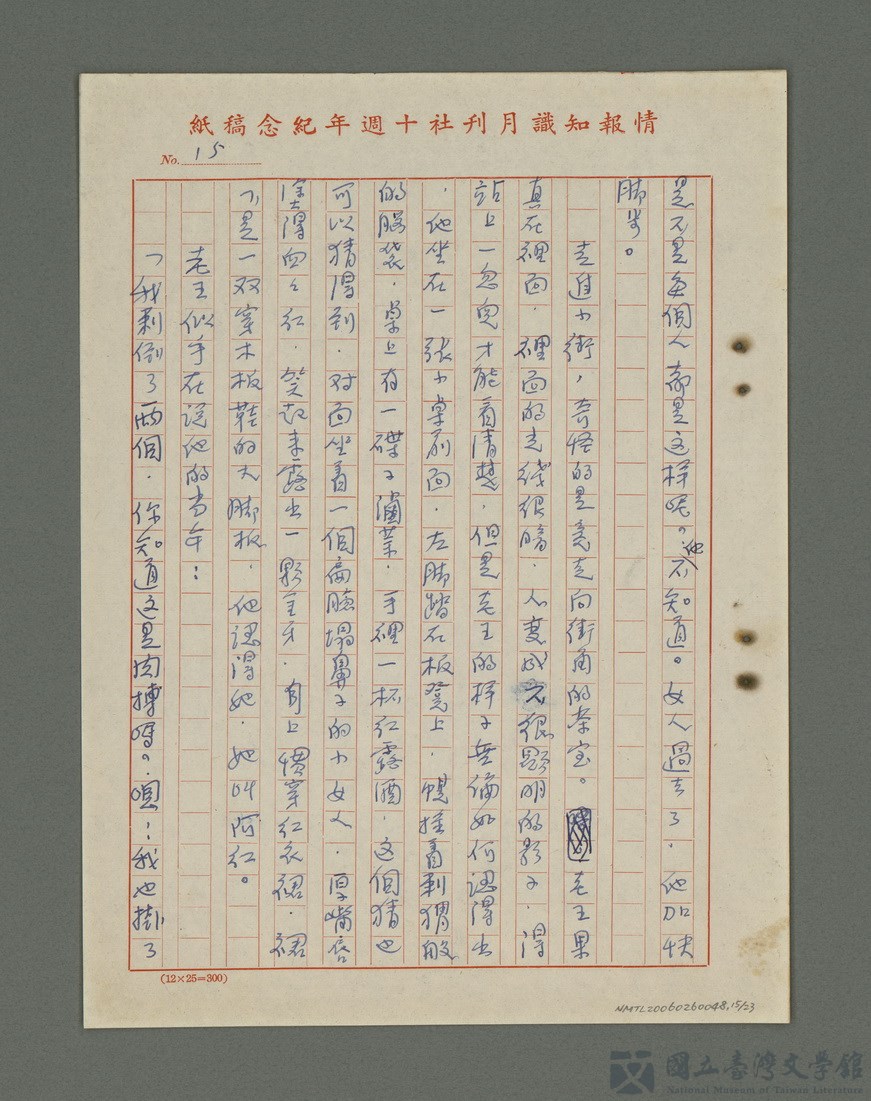 情報知識月刊社十週年紀念稿紙
No. 15
是不是每個人都是这样呢？他不知道。女人過去了．他加快
脚步。
走進小街，奇怪的是竟走向街角的茶室。老王果
真在裡面．裡面的光綫很暗．人變成不很顯明的影子．得
站上一忽兒才能看清楚．但是老王的样子無倫如何認得出
．他坐在一張小桌前面．左脚踏在板凳上．幌着剌猬般
的腦袋．桌上有一碟子滷菜．手裡一杯紅露酒．这個猜也
可以猜得到．对面坐着一個扁臉塌鼻子的小女人．厚嘴唇
塗得血々紅．笑起来露出一顆金牙．身上慣穿紅衣裙．裙
下是一双穿木板鞋的大脚板．他認得她．她叫阿红。
老王似乎在説他的当年：
「我剌倒了兩個．你知道这是肉搏嗎？．嗯：我也掛了
(12×25=300)
NMTL20060260048,15/23
國立臺灣文學館
National Museum of Taiwan Literature